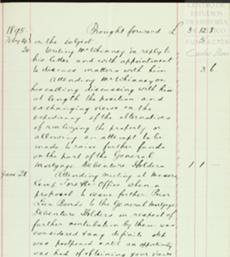 1895 Brought forward £ 3 12 8
on the subject 5
20 Writing Mr Chinery in reply to
his letter and with appointment
to discuss matters with him 3 6
Attending Mr Chinery on
his calling discussing with him
at length the position and
exchanging views on the
expediency of the alternatives
of realizing the property or
allowing an attempt to be
made to raise further funds
on the part of the General
Mortgage Debenture Holders 1 1
June 21 Attending meeting at Messrs
Office when a
proposal to issue further Prior
Lien Bonds to the General Mortgage
Debenture Holders in respect of
further contribution by them was
considered
was postponed until an opportunity
was had of obtaining your views